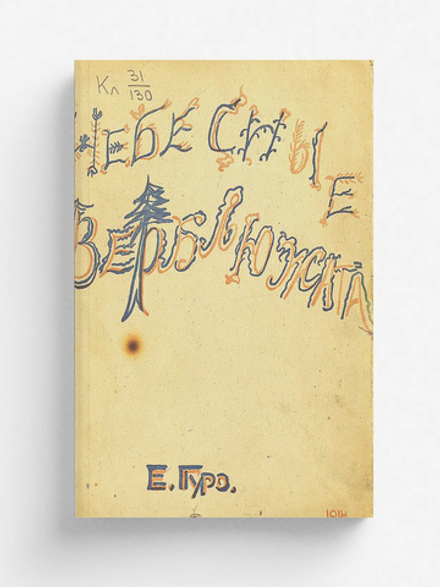 Кл 31
130
НЕБЕСНЫ
Е
ВЕРБЛЮЖАТА
Е. Гуро.